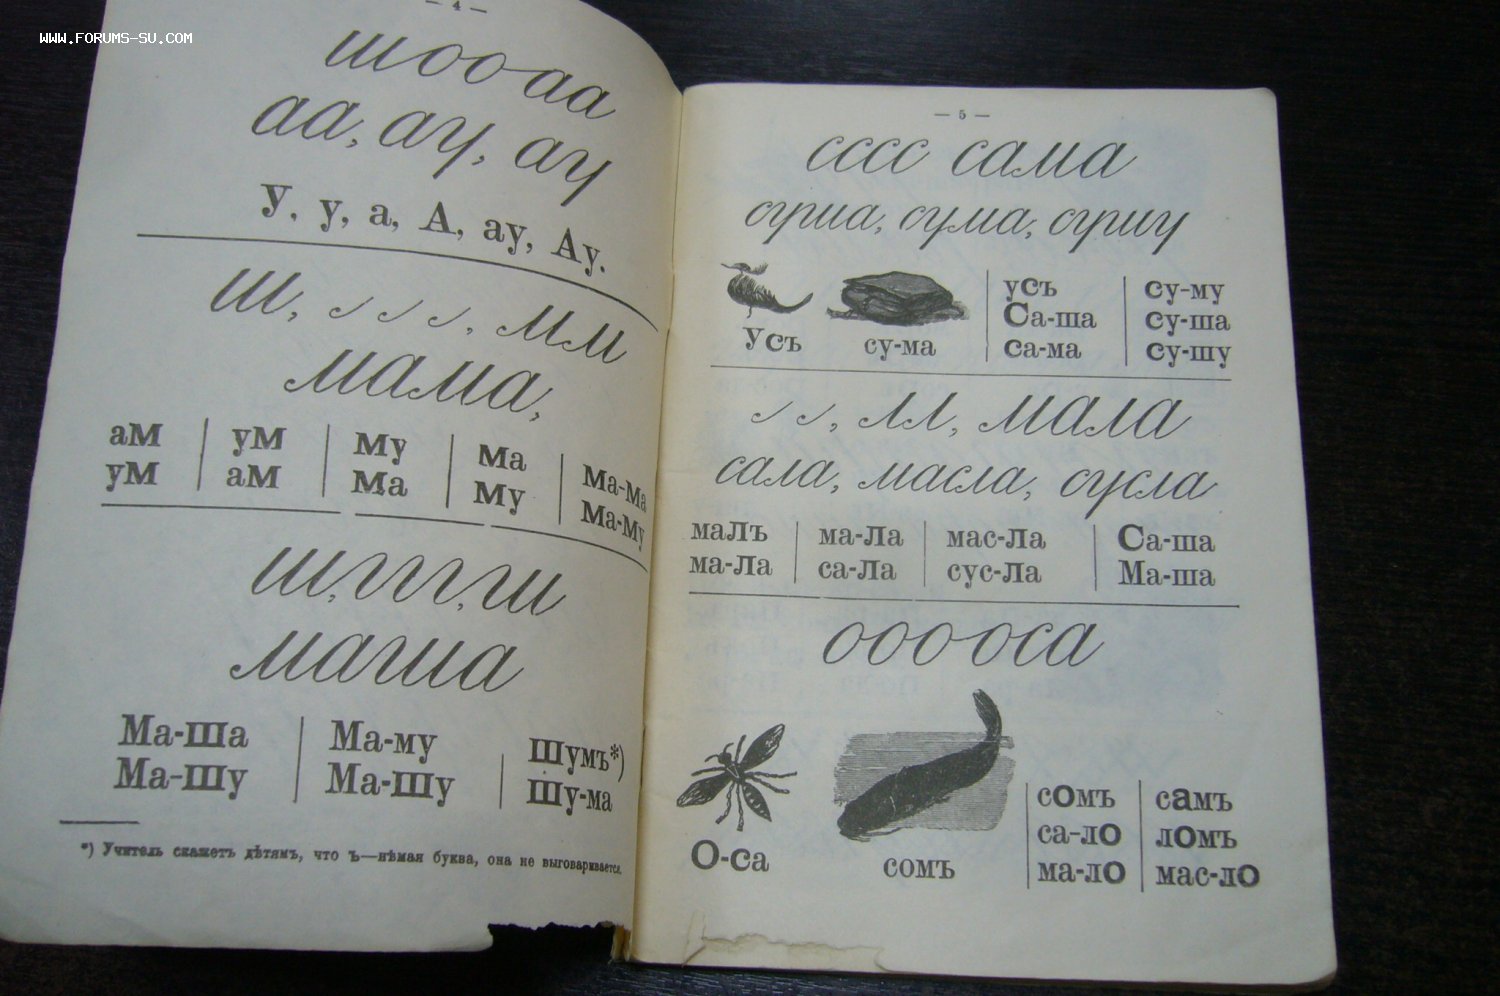 WWW.FORUMS-SU.COM
— 4 —
ш о о аа
аа, ау, ау
У, у, а, А, ау, Ау.
ш, м м
мама,
ам | ум | му | ма | ма-ма
ум | ам | ма | му | ма-му
ш, ш
маша
Ма-ша | Ма-му | Шумъ*)
Ма-шу | Ма-шу | Шу-ма
*) Учитель скажетъ дѣтямъ, что ъ—нѣмая буква, она не выговаривается.
— 5 —
сссс сама
суша, сума, сушу
усъ су-ма
усъ | су-му
Са-ша | су-ша
са-ма | су-шу
лл, мала
сала, масла, сусла
малъ | ма-ла | мас-ла | Са-ша
ма-ла | са-ла | сус-ла | Ма-ша
ооооса
О-са сомъ
сомъ | самъ
са-ло | ломъ
ма-ло | мас-ло